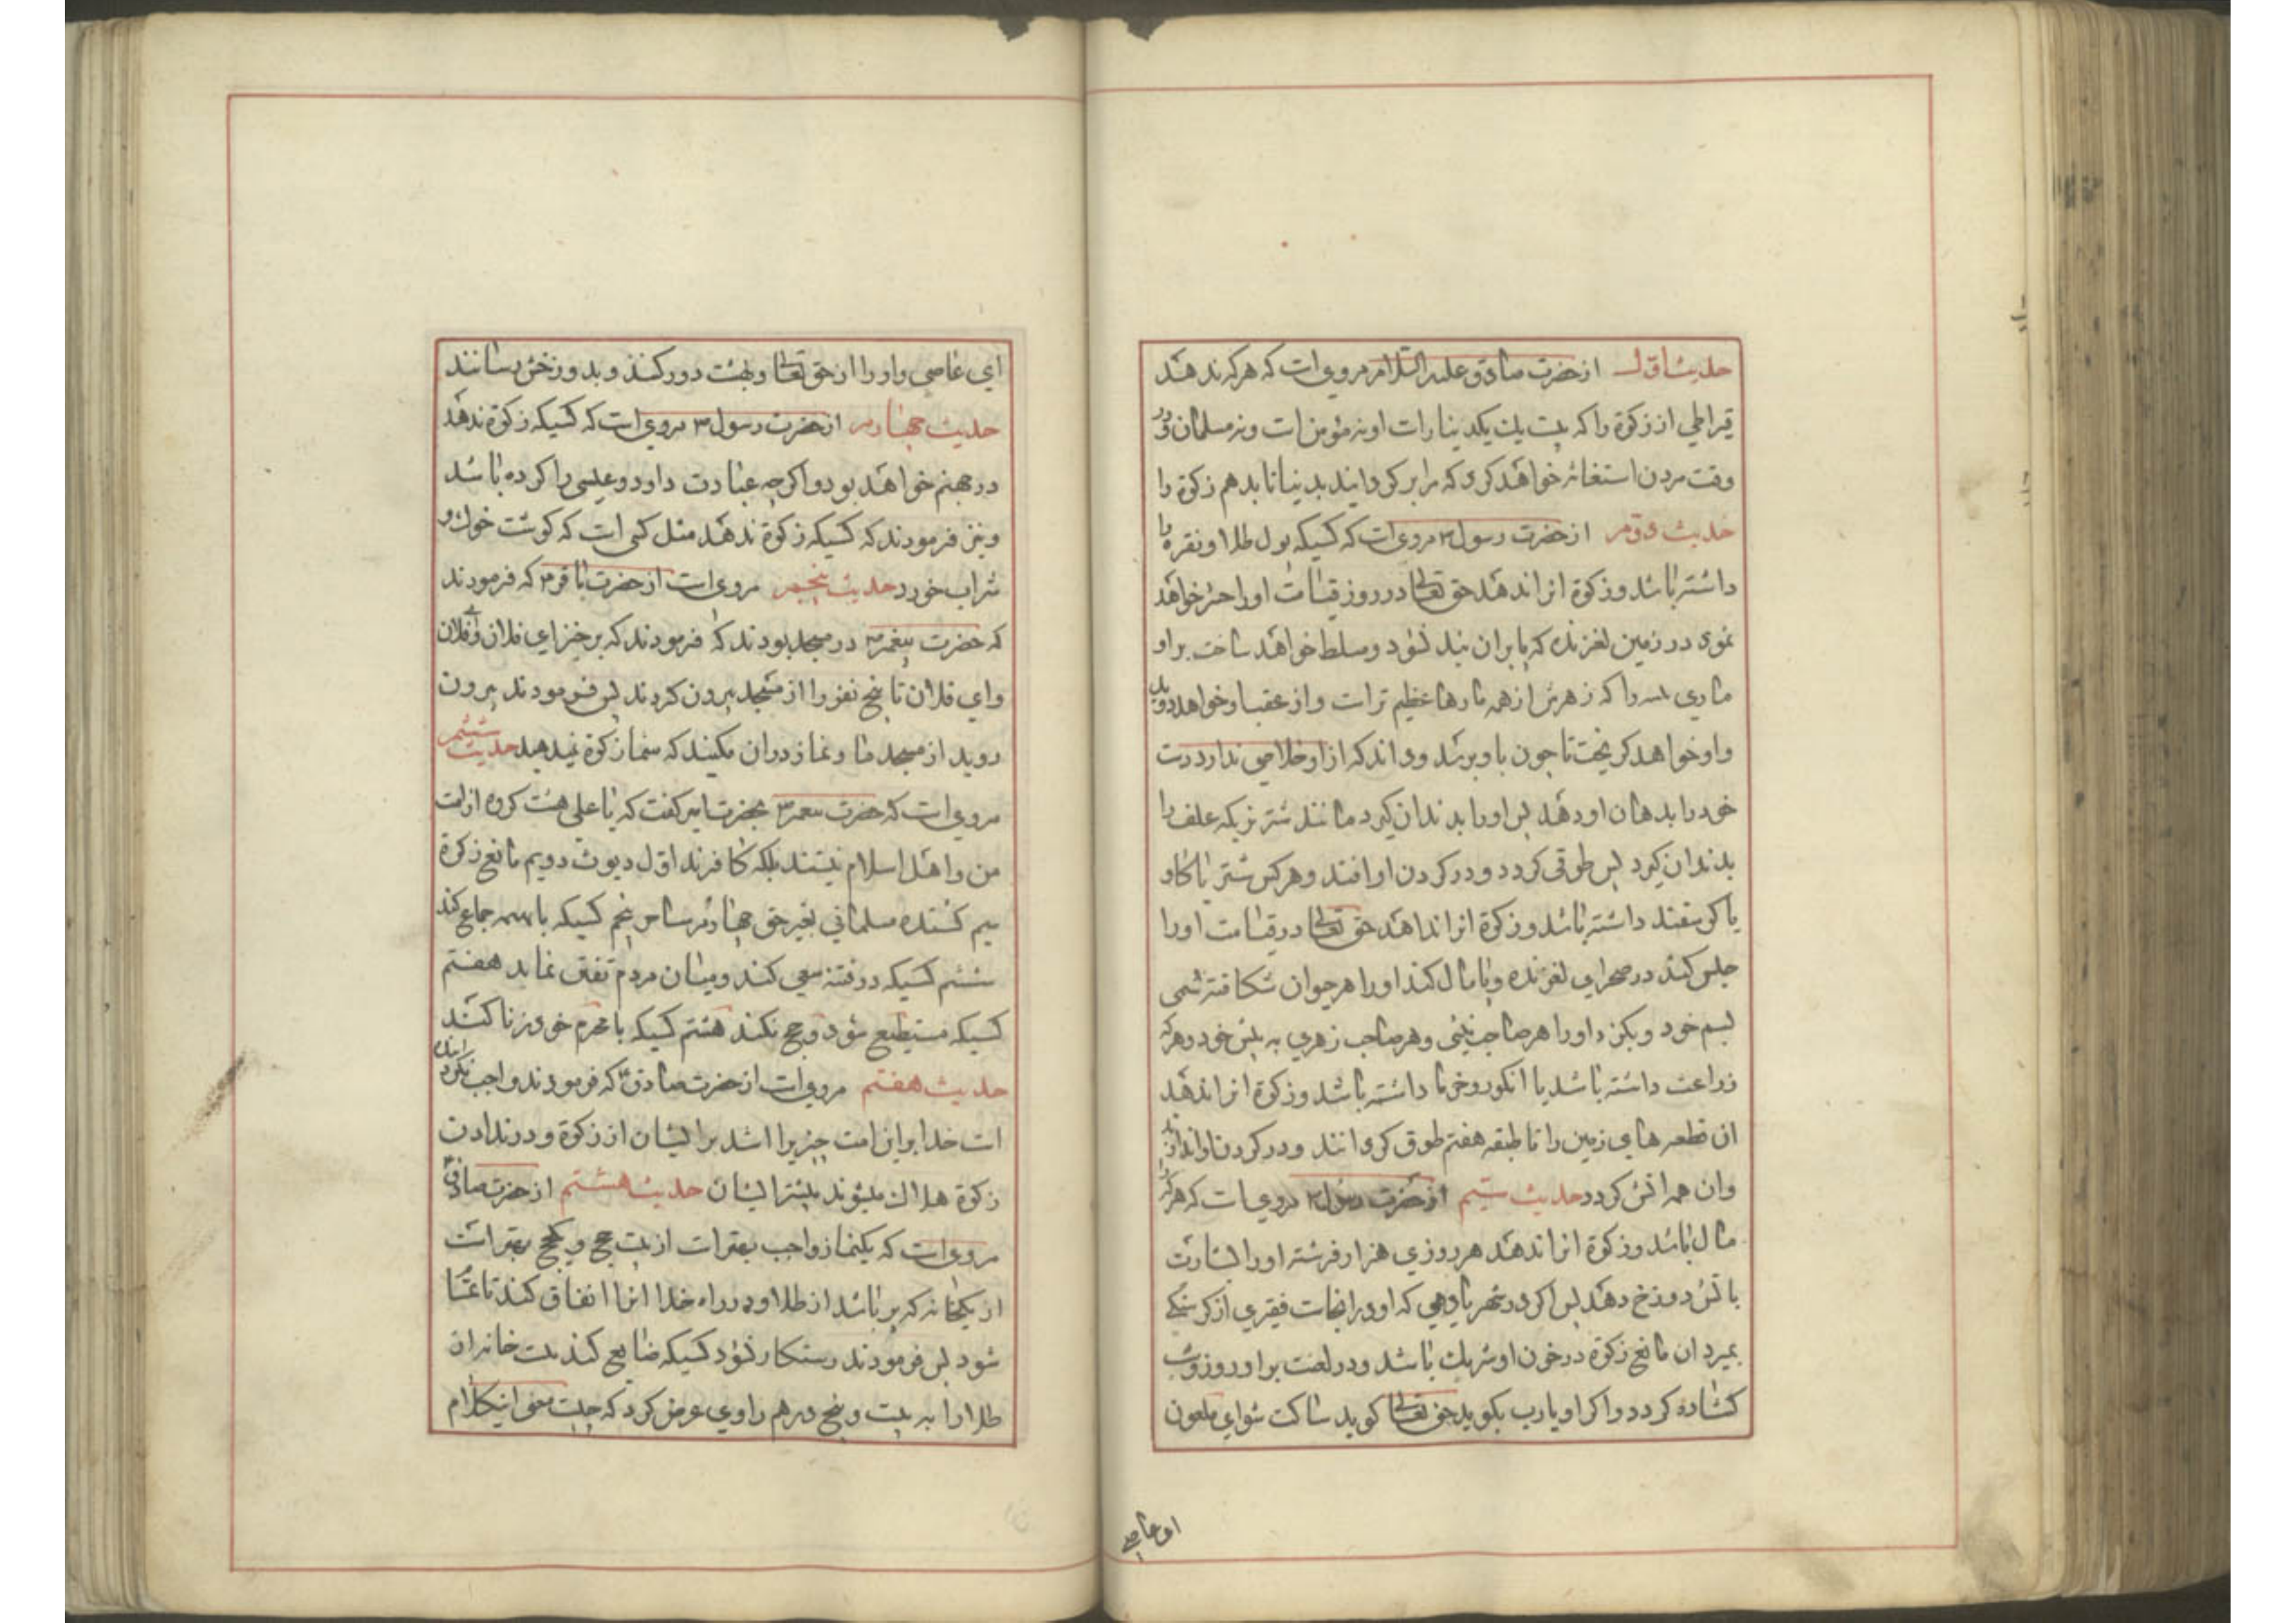 حدیث اول از حضرت صادق علیه السلام مرویست که هر که ندهد
قیراطی از زکوة را که بیست یک یکدینار است او نه مؤمن است و نه مسلمان و در
وقت مردن استغاثه خواهد کرد که مرا برگردانید بدنیا تا بدهم زکوة را
حدیث دوم از حضرت رسول ۳ مرویست که کسیکه پول طلا و نقره را
داشته باشد و زکوة انرا ندهد حق تعالی در روز قیامت او را حشر خواهد
نمود در زمین لغزنده که پا بران بند نشود و مسلط خواهد ساخت بر او
ماری را که زهرش از همه مارها عظیم تر است و از عقب او خواهد دوید
و او خواهد کریخت تا چون باو برسد و داند که از او خلاصی ندارد دست
خود را بدهان او دهد پس او را بدندان گیرد مانند شتر نر که علف را
بدندان گیرد پس طوقی کردد و در کردن او افتد و هر کس شتر یا کاو
یا کوسفند داشته باشد و زکوة انرا ندهد حق تعالی در قیامت او را
حبس کند در صحرای لغزنده و پامال کند او را هر حیوان شکافته سمی
بسم خود و بکزد او را هر صاحب نیشی و هر صاحب زهری به نیش خود و هر که
زراعت داشته باشد یا انکور و خرما داشته باشد و زکوة انرا ندهد
ان قطعه های زمین را تا طبقه هفتم طوق کردانند و در کردن او اندازند
و ان همه اتش کردد حدیث سیم از حضرت رسول ۳ مرویست که هر که را
مال باشد و زکوة انرا ندهد هر روزی هزار فرشته او را بشارت
باتش دوزخ دهند پس اکر در شهر یا دهی که او در انجاست فقیری از کرسنکی
بمیرد ان مانع زکوة در خون او شریک باشد و در لعنت بر او روز و شب
کشاده کردد و اکر او یا رب بکوید حق تعالی کوید ساکت شو ای ملعون
ای عاصی
ای عاصی و او را از حق تعالی و بهشت دور کنند و بدوزخش رسانند
حدیث چهارم از حضرت رسول ۳ مرویست که کسیکه زکوة ندهد
در جهنم خواهد بود و اکرچه عبادت داود و عیسی را کرده باشد
و نیز فرمودند که کسیکه زکوة ندهد مثل کسی است که کوشت خوک و
شراب خورد حدیث پنجم مرویست از حضرت باقر ۳ که فرمودند
که حضرت پیغمبر ۳ در مسجد بودند که فرمودند که برخیز ای فلان و ای فلان
و ای فلان تا پنج نفر را از مسجد بیرون کردند پس فرمودند بیرون
روید از مسجد ما و نماز در ان مکنید که شما زکوة نمیدهید حدیث ششم
مرویست که حضرت پیغمبر ۳ بحضرت امیر کفت که یا علی هشت کروه از امت
من و اهل اسلام نیستند بلکه کافرند اول دیوث دویم مانع زکوة
سیم کشنده مسلمانی بغیر حق چهارم ساحر پنجم کسیکه با بهیمه جماع کند
ششم کسیکه در فتنه سعی کند و میان مردم تفتین نماید هفتم
کسیکه مستطیع شود و حج نکند هشتم کسیکه با محرم خود زنا کند
حدیث هفتم مرویست از حضرت صادق که فرمودند واجب نکردانیده
است خدا بر این امت چیزیرا اشد بر ایشان از زکوة و در ندادن
زکوة هلاک میشوند بیشتر ایشان حدیث هشتم از حضرت صادق
مرویست که یکنماز واجب بهتر است از بیست حج و یکحج بهتر است
از یکخانه که پر باشد از طلا و در راه خدا انرا انفاق کند تا تمام
شود پس فرمودند رستکار نشود کسیکه ضایع کند بیست خانه ان
طلا را به بیست و پنج درهم راوی عرض کرد که چیست معنی اینکلام